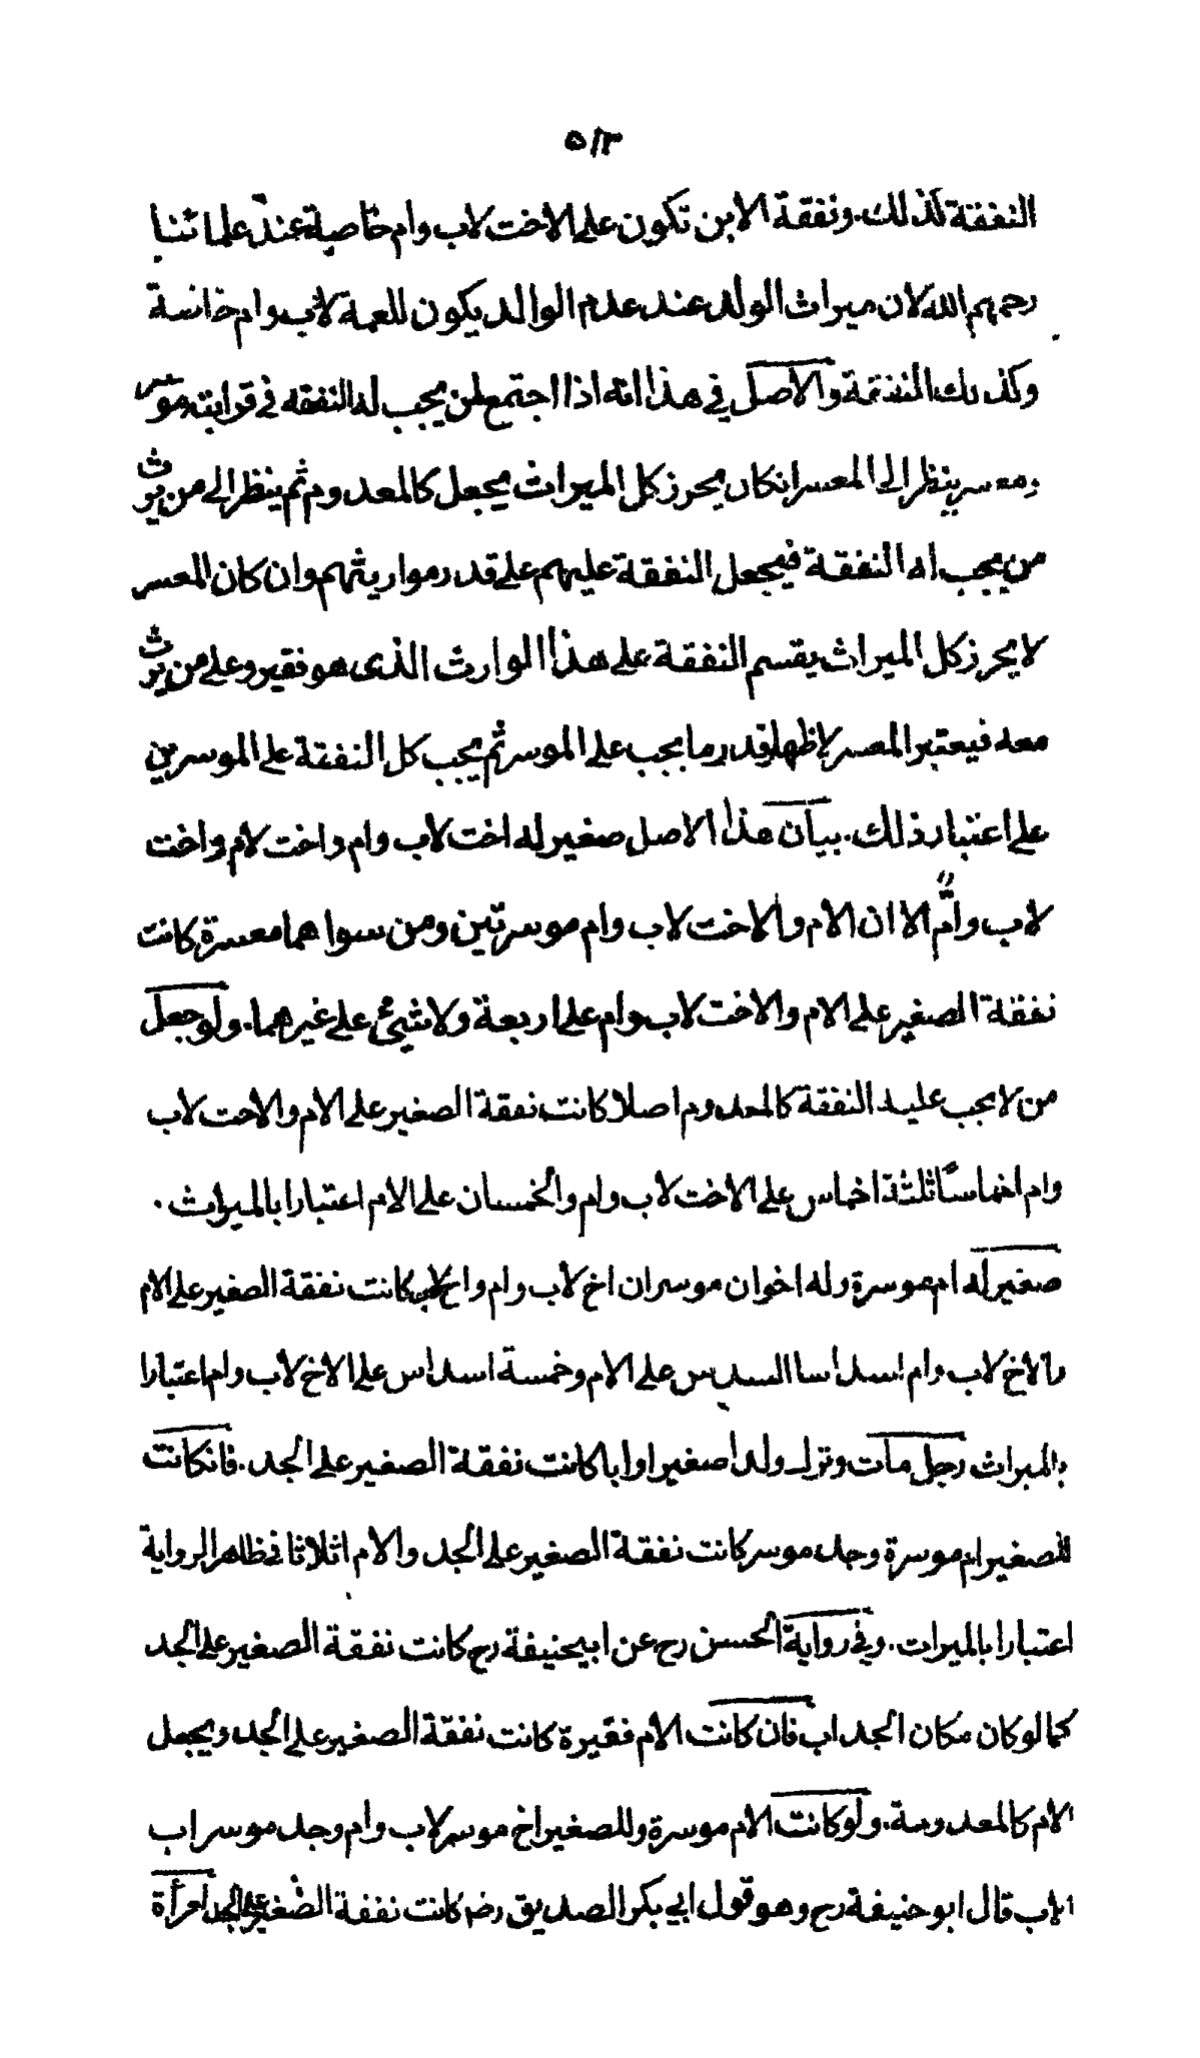 ٥١٣
النفقة كذلك. ونفقة الابن تكون على الاخت لاب وام خاصة عند علمائنا
رحمهم الله لان ميراث الولد عند عدم الوالد يكون للعمة لاب وام خاسة
وكذلك النفقة والاصل في هذا انه اذا اجتمع لمن يجب له النفقه في قرابته موسر
ومعسر ينظر الى المعسر انكان يحرز كل الميراث يجعل كالمعدوم ثم ينظر الى من يرث
من يجب له النفقة فيجعل النفقة عليهم على قدر مواريثهم وان كان المعسر
لا يحرز كل الميراث يقسم النفقة على هذا الوارث الذى هو فقير وعلى من يرث
معه فيعتبر المعسر لاظهار قدر ما يجب على الموسر ثم يجب كل النفقة على الموسرين
على اعتبار ذلك. بيان هذا الاصل صغير له اخت لاب وام واخت لام واخت
لاب وامّ الا ان الام والاخت لاب وام موسرتين ومن سواهما معسرة كانت
نفقة الصغير على الام والاخت لاب وام على اربعة ولا شيئ على غيرهما. ولو جعل
من لا يجب عليه النفقة كالمعدوم اصلا كانت نفقة الصغير على الام والاخت لاب
وام اخماسًا ثلثة اخماس على الاخت لاب وام والخمسان على الام اعتبارا بالميراث.
صغير له ام موسرة وله اخوان موسران اخ لاب وام واخ لاب كانت نفقة الصغير على الام
والاخ لاب وام اسداسا السدس على الام وخمسة اسداس على الاخ لاب وام اعتبارا
بالميراث رجل مات وترك ولدا صغيرا وابا كانت نفقة الصغير على الجد. فانكانت
للصغير ام موسرة وجد موسر كانت نفقة الصغير على الجد والام اثلاثا فى ظاهر الرواية
اعتبارا بالميرات. وفي رواية الحسن رح عن ابيحنيفة رح كانت نفقة الصغير على الجد
كما لو كان مكان الجد اب فان كانت الام فقيرة كانت نفقة الصغير على الجد ويجعل
الام كالمعدومة. ولو كانت الام موسرة وللصغير اخ موسر لاب وام وجد موسر اب
الاب قال ابو حنيفة رح وهو قول ابي بكر الصديق رضه كانت نفقة الصغير على الجد امرأة